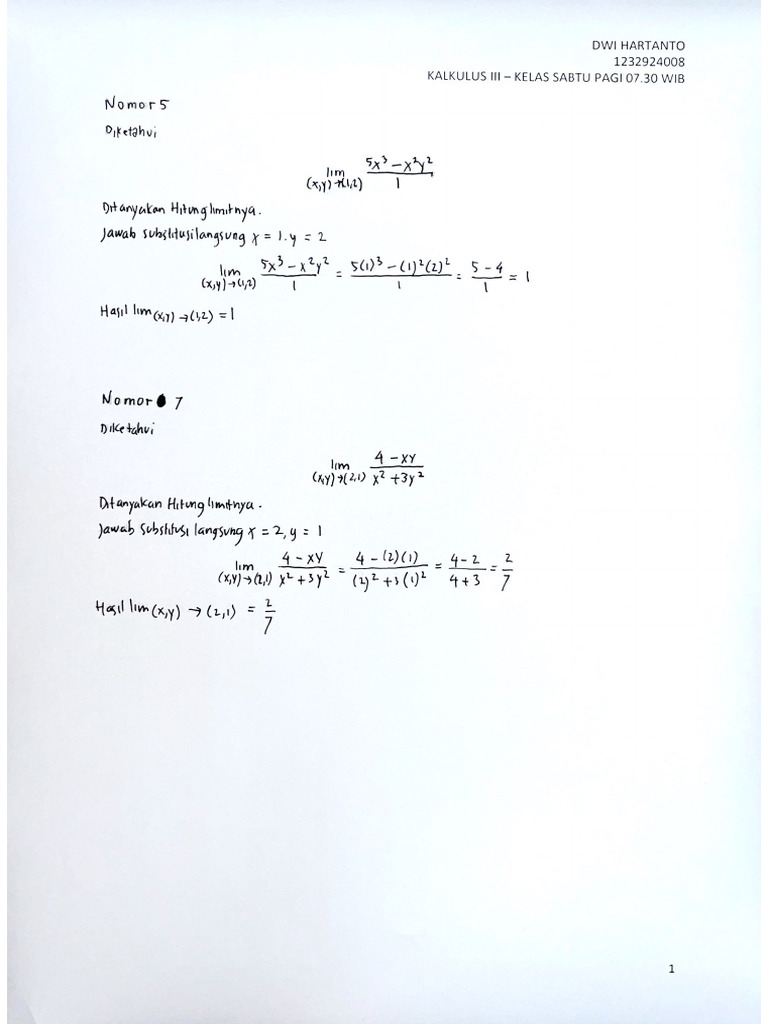 DWI HARTANTO
1232924008
KALKULUS III – KELAS SABTU PAGI 07.30 WIB
Nomor 5
Diketahui
lim (x,y)→(1,2) (5x³ − x²y²)/1
Ditanyakan Hitung limitnya.
Jawab substitusi langsung x = 1. y = 2
lim (x,y)→(1,2) (5x³ − x²y²)/1 = (5(1)³ − (1)²(2)²)/1 = (5 − 4)/1 = 1
Hasil lim (x,y)→(1,2) = 1
Nomor 7
Diketahui
lim (x,y)→(2,1) (4 − xy)/(x² + 3y²)
Ditanyakan Hitung limitnya.
Jawab substitusi langsung x = 2, y = 1
lim (x,y)→(2,1) (4 − xy)/(x² + 3y²) = (4 − (2)(1))/((2)² + 3(1)²) = (4 − 2)/(4 + 3) = 2/7
Hasil lim (x,y) → (2,1) = 2/7
1